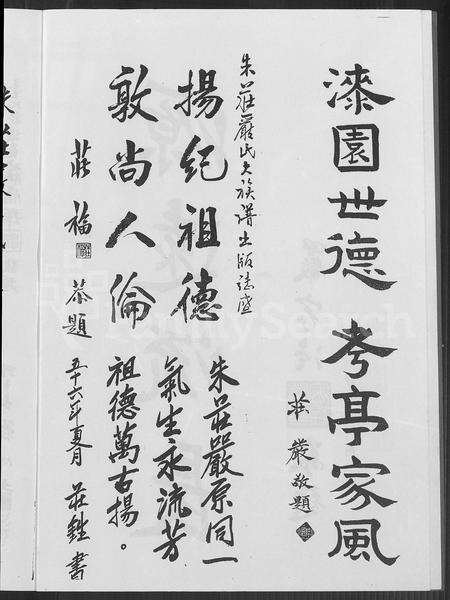 漆園世德 考亭家風
莊嚴敬題
朱莊嚴氏大族譜出版誌盛
揚紀祖德
敦尚人倫
莊福 恭題
朱莊嚴原同一
氣生永流芳
祖德萬古揚。
五十六年夏月 莊 書